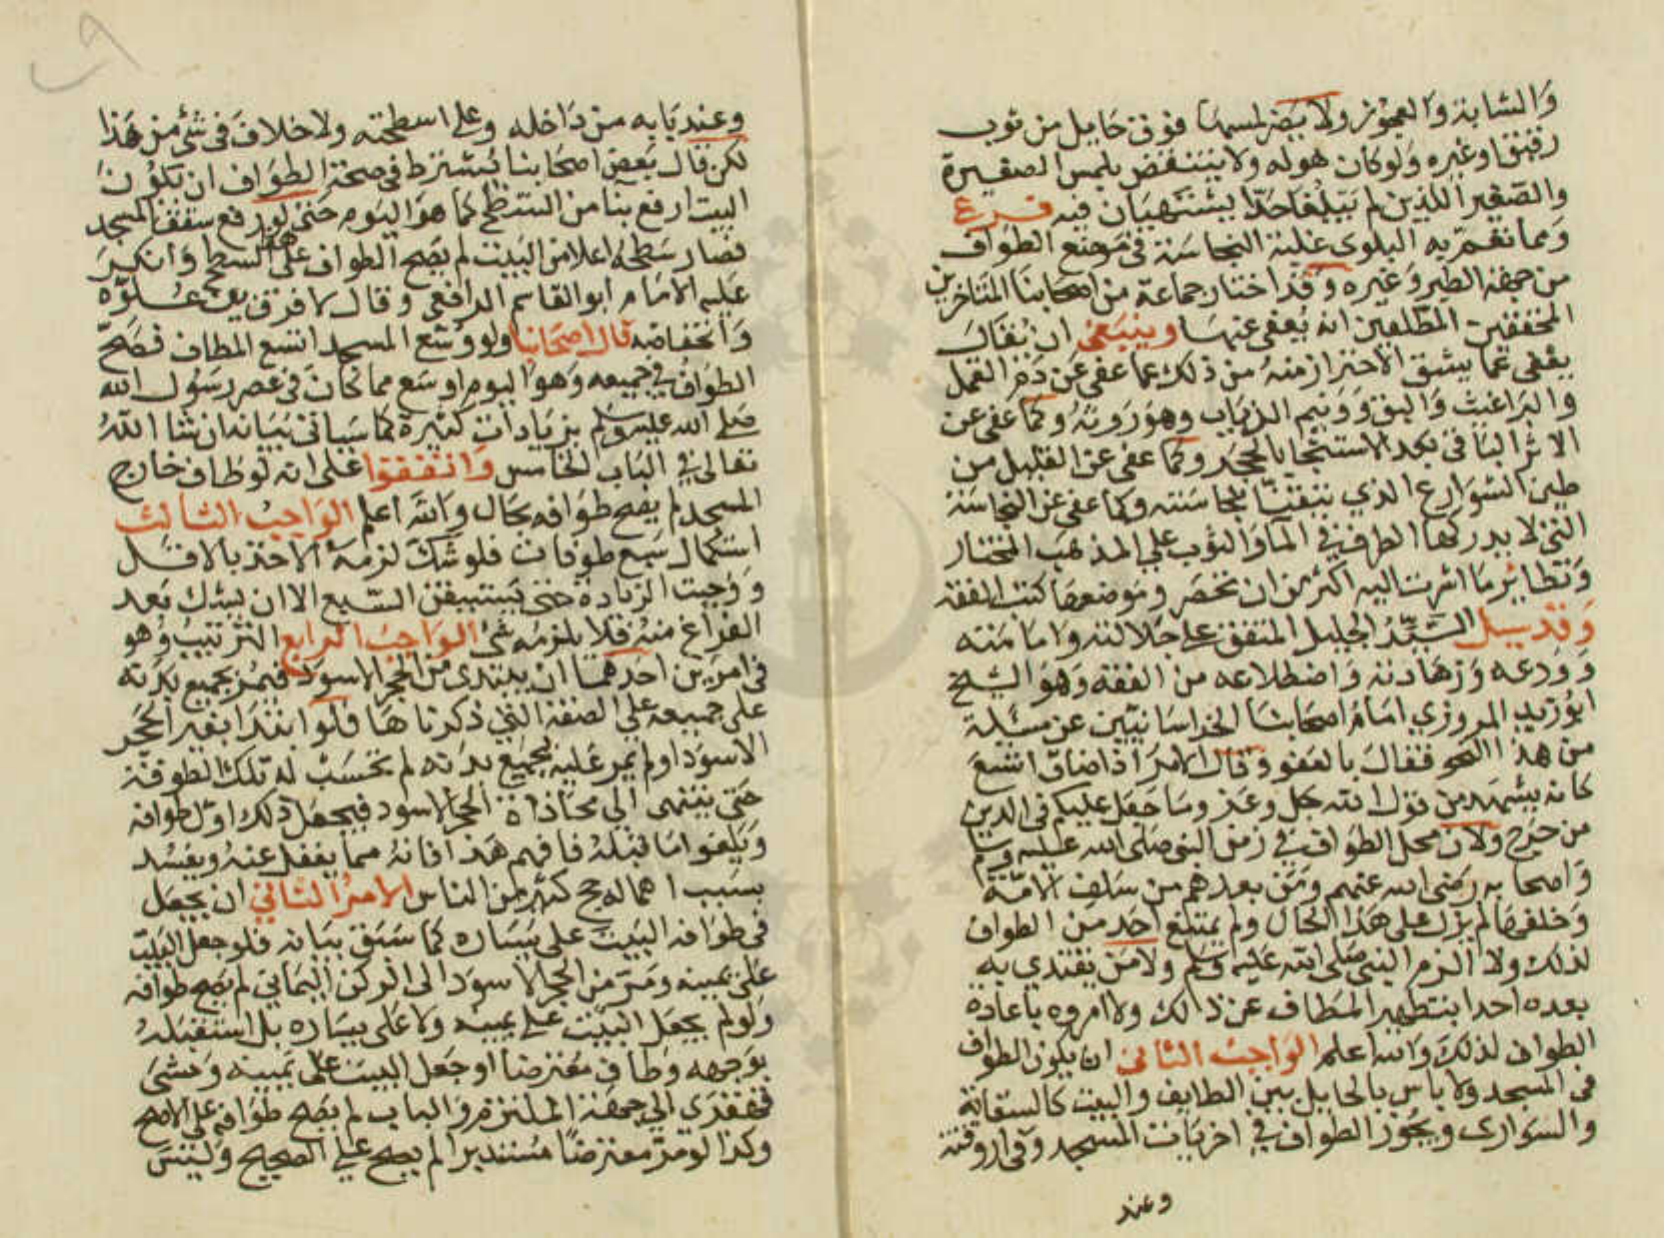 والشابة والعجوز ولا يضر لمسها فوق حايل من ثوب
رقيق وغيره ولو كان هوله ولا ينتقض بلمس الصغيرة
والصغير اللذين لم يبلغا حدا يشتهيان فيه فرع
ومما تعم به البلوى غلبة النجاسة في موضع الطواف
من جهة الطير وغيره وقد اختار جماعة من اصحابنا المتاخرين
المحققين المطلعين انه يعفى عنها وينبغي ان يقال
يعفى عما يشق الاحتراز منه من ذلك كما عفى عن دم القمل
والبراغيث والبق وونيم الذباب وهو روثه وكما عفى عن
الاثر الباقي بعد الاستنجا بالحجر وكما عفى عن القليل من
طين الشوارع الذي تيقنا نجاسته وكما عفى عن النجاسة
التي لا يدركها الطرف في الما والثوب على المذهب المختار
ونظاير ما اشرت اليه اكثر من ان تحصر وموضعها كتب الفقه
وقد سيل السيد الجليل المتفق على جلالته وامامته
وورعه وزهادته واضطلاعه من الفقه وهو الشيخ
ابو زيد المروزي امام اصحابنا الخراسانيين عن مسيلة
من هذا النحو فقال بالعفو وقال الامر اذا ضاق اتسع
كانه يستمد من قول الله جل وعز وما جعل عليكم في الدين
من حرج ولان محل الطواف في زمن النبي صلى الله عليه وسلم
واصحابه رضي الله عنهم ومن بعدهم من سلف الامة
وخلفها لم يزل على هذا الحال ولم يمتنع احد من الطواف
لذلك ولا الزم النبي صلى الله عليه وسلم ولا من يقتدي به
بعده احدا بتطهير المطاف عن ذالك ولا امروه باعادة
الطواف لذلك والله اعلم الواجب الثاني ان يكون الطواف
في المسجد ولا باس بالحايل بين الطايف والبيت كالسقاية
والسوارى ويجوز الطواف في اخريات المسجد وفي اروقته
وعند
وعند بابه من داخله وعلى اسطحته ولا خلاف في شئ من هذا
لكن قال بعض اصحابنا يشترط في صحة الطواف ان تكون
البيت ارفع بنا من السطح كما هو اليوم حتى لو رفع سقف المسجد
فصار سطحه اعلا من البيت لم يصح الطواف على هذا السطح وانكر
عليه الامام ابو القاسم الرافعي وقال لا فرق بين علوه
وانخفاضه قال اصحابنا ولو وسع المسجد اتسع المطاف فصح
الطواف في جميعه وهو اليوم اوسع مما كان في عصر رسول الله
صلى الله عليه وسلم بزيادات كثيرة كما سياتي بيانه ان شا الله
تعالى في الباب الخامس واتفقوا على انه لو طاف خارج
المسجد لم يصح طوافه بحال والله اعلم الواجب الثالث
استكمال سبع طوفات فلو شك لزمه الاخذ بالاقل
ووجبت الزيادة حتى يستيقن السبع الا ان يشك بعد
الفراغ منه فلا يلزمه شئ الواجب الرابع الترتيب وهو
في امرين احدهما ان يبتدى من الحجر الاسود فيمر بجميع بدنه
على جميعه على الصفة التي ذكرناها فلو ابتدا بغير الحجر
الاسود او لم يمر عليه بجميع بدنه لم تحسب له تلك الطوفة
حتى ينتهى الى محاذاة الحجر الاسود فيجعل ذلك اول طوافه
ويلغوا ما قبله فافهم هذا فانه مما يغفل عنه ويفسد
بسبب اهماله حج كثير من الناس الامر الثاني ان يجعل
في طوافه البيت على يساره كما سبق بيانه فلو جعل البيت
على يمينه ومر من الحجر الاسود الى الركن اليماني لم يصح طوافه
ولو لم يجعل البيت على يمينه ولا على يساره بل استقبله
بوجهه وطاف معترضا او جعل البيت على يمينه ومشى
قهقرى الى جهة الملتزم والباب لم يصح طوافه على الاصح
وكذا لو مر معترضا مستدبرا لم يصح على الصحيح وليس